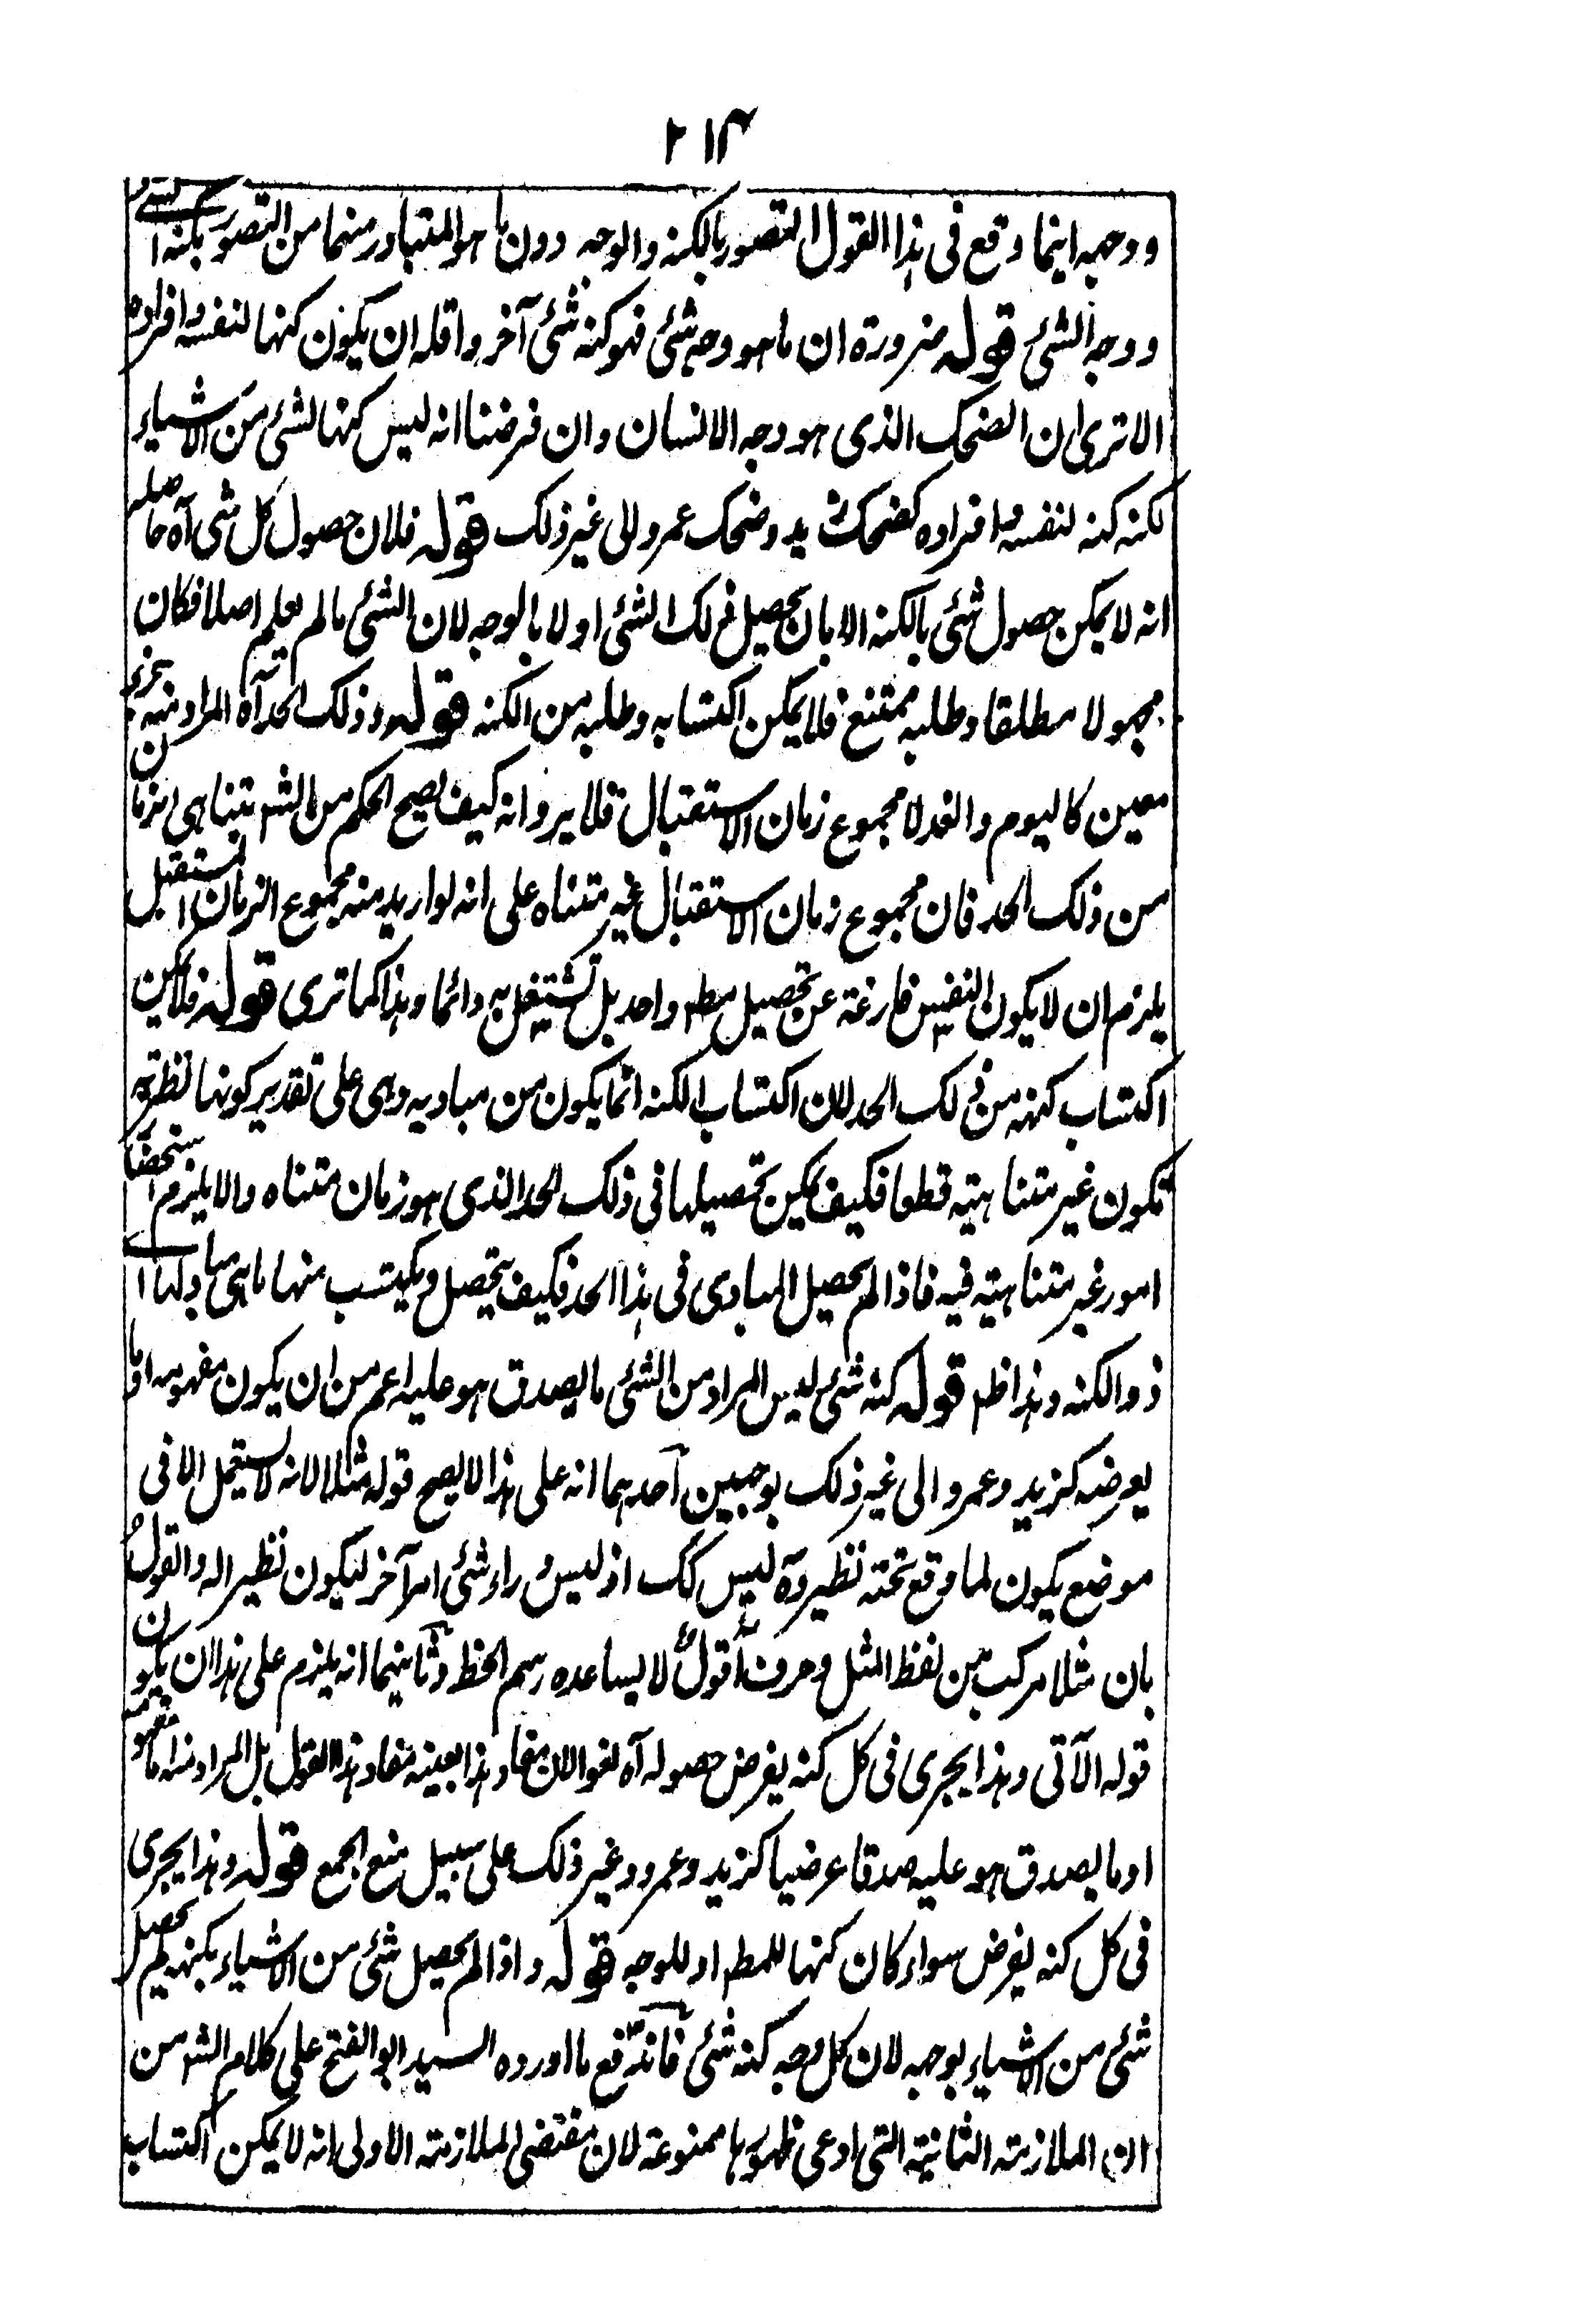 ٢١٤
ووجهه اينما وقع فى هذا القول التصور بالكنه والوجه دون ما هو المتبادر منهما من التصور بكنه الشئ
ووجه الشئ قوله ضرورة ان ما هو وجه شئ فهو كنه شئ آخر واقله ان يكون كنها لنفسه وافراده
الا ترى ان الضحك الذى هو وجه الانسان وان فرضنا انه ليس كنها لشئ من الاشياء
لكنه كنه لنفسه وافراده كضحك زيد وضحك عمرو الى غير ذلك قوله فلان حصول كل شئ آه حاصله
انه لا يمكن حصول شئ بالكنه الا بان يحصل ذلك الشئ اولا بالوجه لان الشئ ما لم يعلم اصلا فكان
مجهولا مطلقا وطلبه ممتنع فلا يمكن اكتسابه وطلبه من الكنه قوله وذلك الحد آه المراد منه
معين كاليوم والغد لا مجموع زمان الاستقبال فلا يرد انه كيف يصح الحكم من الشر بتناهى الزمان
من ذلك الحد فان مجموع زمان الاستقبال غير متناه على انه لو اريد منه مجموع الزمان المستقبل
يلزم ان لا يكون النفس فارغة عن تحصيل مطم واحد بل تشتغل به دائما وهذا كما ترى قوله فلا يمكن
اكتساب كنهه من ذلك الحد لان اكتساب الكنه انما يكون من مباديه وهى على تقدير كونها نظرية
تكون غير متناهية قطعا فكيف يمكن تحصيلها فى ذلك الحد الذى هو زمان متناه والا يلزم استحضار
امور غير متناهية فيه فاذا لم يحصل المبادى فى هذا الحد فكيف يتحصل ويكتسب منها ما هى مباد لها
ذو الكنه وهذا ظم قوله كنه شئ ليس المراد من الشئ ما يصدق هو عليه اعم من ان يكون مفهومه او ما
يعرضه كزيد وعمرو الى غير ذلك بوجهين احدهما انه على هذا لا يصح قوله مثلا لانه لا يستعمل الا فى
موضع يكون لما وقع تحته نظير وه ليس كك اذ ليس وراء شئ امر آخر ليكون نظيرا له والقول
بان مثلا مركب من لفظ المثل وحرف لا اقول لا يساعده رسم الخط وثانيهما انه يلزم على هذا ان يكون
قوله الآتى وهذا يجرى فى كل كنه يفرض حصوله آه لغوا لان مفاد هذا بعينه مفاد هذا القول بل المراد منه اما مفهومه
او ما يصدق هو عليه صدقا عرضيا كزيد وعمرو وغير ذلك على سبيل منع الجمع قوله وهذا يجرى
فى كل كنه يفرض سواء كان كنها للمطم او للوجه قوله واذا لم يحصل شئ من الاشياء بكنهه لم يحصل
شئ من الاشياء بوجهه لان كل وجه كنه شئ فاندفع ما اورده السيد ابو الفتح على كلام الشر من
ان الملازمة الثانية التى ادعى ظهورها ممنوعة لان مقتضى الملازمة الاولى انه لا يمكن اكتساب